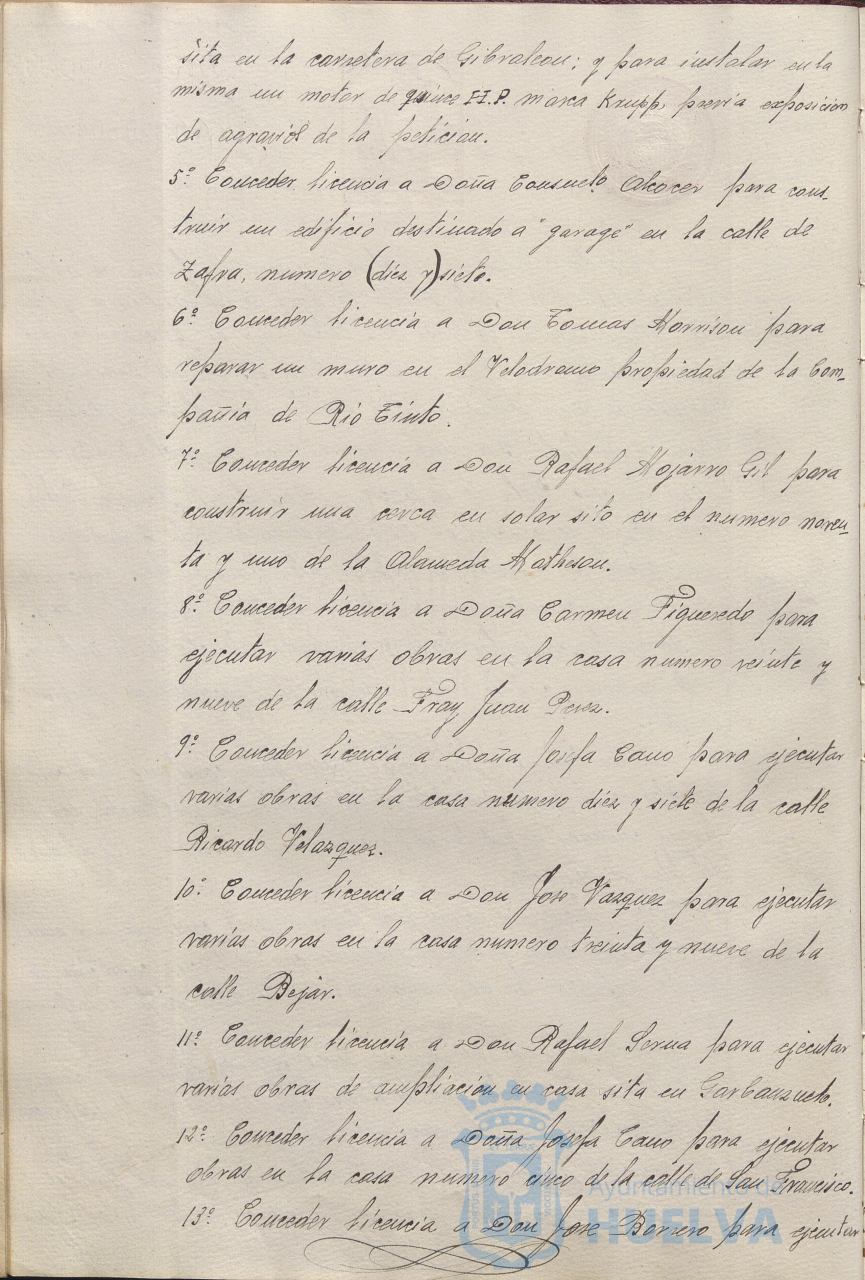 sita en la carretera de Gibraleon; y para instalar en la
misma un motor de quince H.P. marca Krupp, previa exposicion
de agravios de la peticion.
5º Conceder licencia a Doña Consuelo Alcocer para cons-
truir un edificio destinado a "garage" en la calle de
Zafra, numero (diez y) siete.
6º Conceder licencia a Don Tomas Morrison para
reparar un muro en el Velodromo propiedad de la Com-
pañia de Rio Tinto.
7º Conceder licencia a Don Rafael Mojarro Gil para
construir una cerca en solar sito en el numero noven-
ta y uno de la Alameda Matheson.
8º Conceder licencia a Doña Carmen Figueredo para
ejecutar varias obras en la casa numero veinte y
nueve de la calle Fray Juan Perez.
9º Conceder licencia a Doña Josefa Cano para ejecutar
varias obras en la casa numero diez y siete de la calle
Ricardo Velazquez.
10º Conceder licencia a Don Jose Vazquez para ejecutar
varias obras en la casa numero treinta y nueve de la
calle Bejar.
11º Conceder licencia a Don Rafael Serna para ejecutar
varias obras de ampliación en casa sita en Garbanzuelo.
12º Conceder licencia a Doña Josefa Cano para ejecutar
obras en la casa numero cinco de la calle de San Francisco.
13º Conceder licencia a Don Jose Borrero para ejecutar
Ayuntamiento de
HUELVA